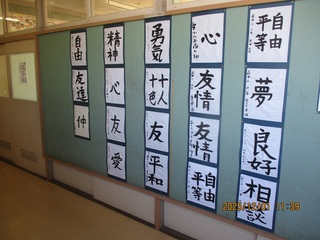 自由
平等
夢
良好
相談
心
友情
友情
自由
平等
勇気
十人
十色
友
平和
精神
心
友
愛
自由
友達
仲